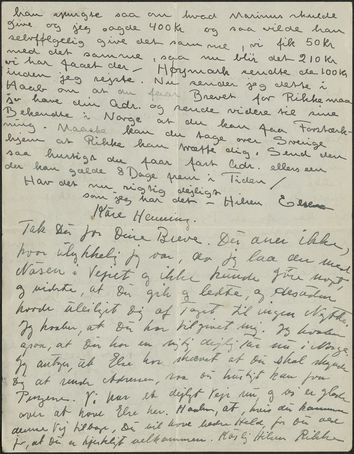 han spurgte saa om hvad Marinus skulde
give og jeg sagde 400 Kr og saa vilde han
selvfølgelig give det samme, vi fik 50 Kr
med det samme, saa nu blir det 210 Kr
vi har faaet der. Højmark sendte de 100 Kr
inden jeg rejste. Nu sender jeg dette i
Haab om at du faar Brevet før Rikke maa
jo have din Adr. og sende videre til sine
Bekendte i Norge at du kan faa
Maaske kan du tage over Sverige
hjem at Rikke kan træffe dig. Send den
saa hurtigt du faar fast Adr. ellers en
der kan gælde 8 Dage frem i Tiden/
Hav det nu rigtig dejligt
som jeg har det – Hilsen Else
Kære Henning.
Tak Du for Dine Breve. Du aner ikke,
hvor ulykkelig jeg var, da jeg laa der med
Næsen i Vejret og ikke kunde gøre noget
og vidste, at Du gik og ledte, og desuden
havde ulejliget Dig af Toget til ingen Nytte.
Jeg haaber, at Du har tilgivet mig. Jeg haaber
ogsaa, at Du har en rigtig dejlig Tur nu i Norge.
Jeg antager at Else har skrevet at Du skal skynde
Dig at sende Adressen, saa Du hurtigt kan faa
Pengene. Vi har et dejligt Vejr nu, og vi er glade
over at have Else her. Haaber, at, hvis Du kommer
denne Vej tilbage, Du vil have bedre Held, for Du ved
jo, at Du er hjerteligt velkommen. Kærlig Hilsen Rikke